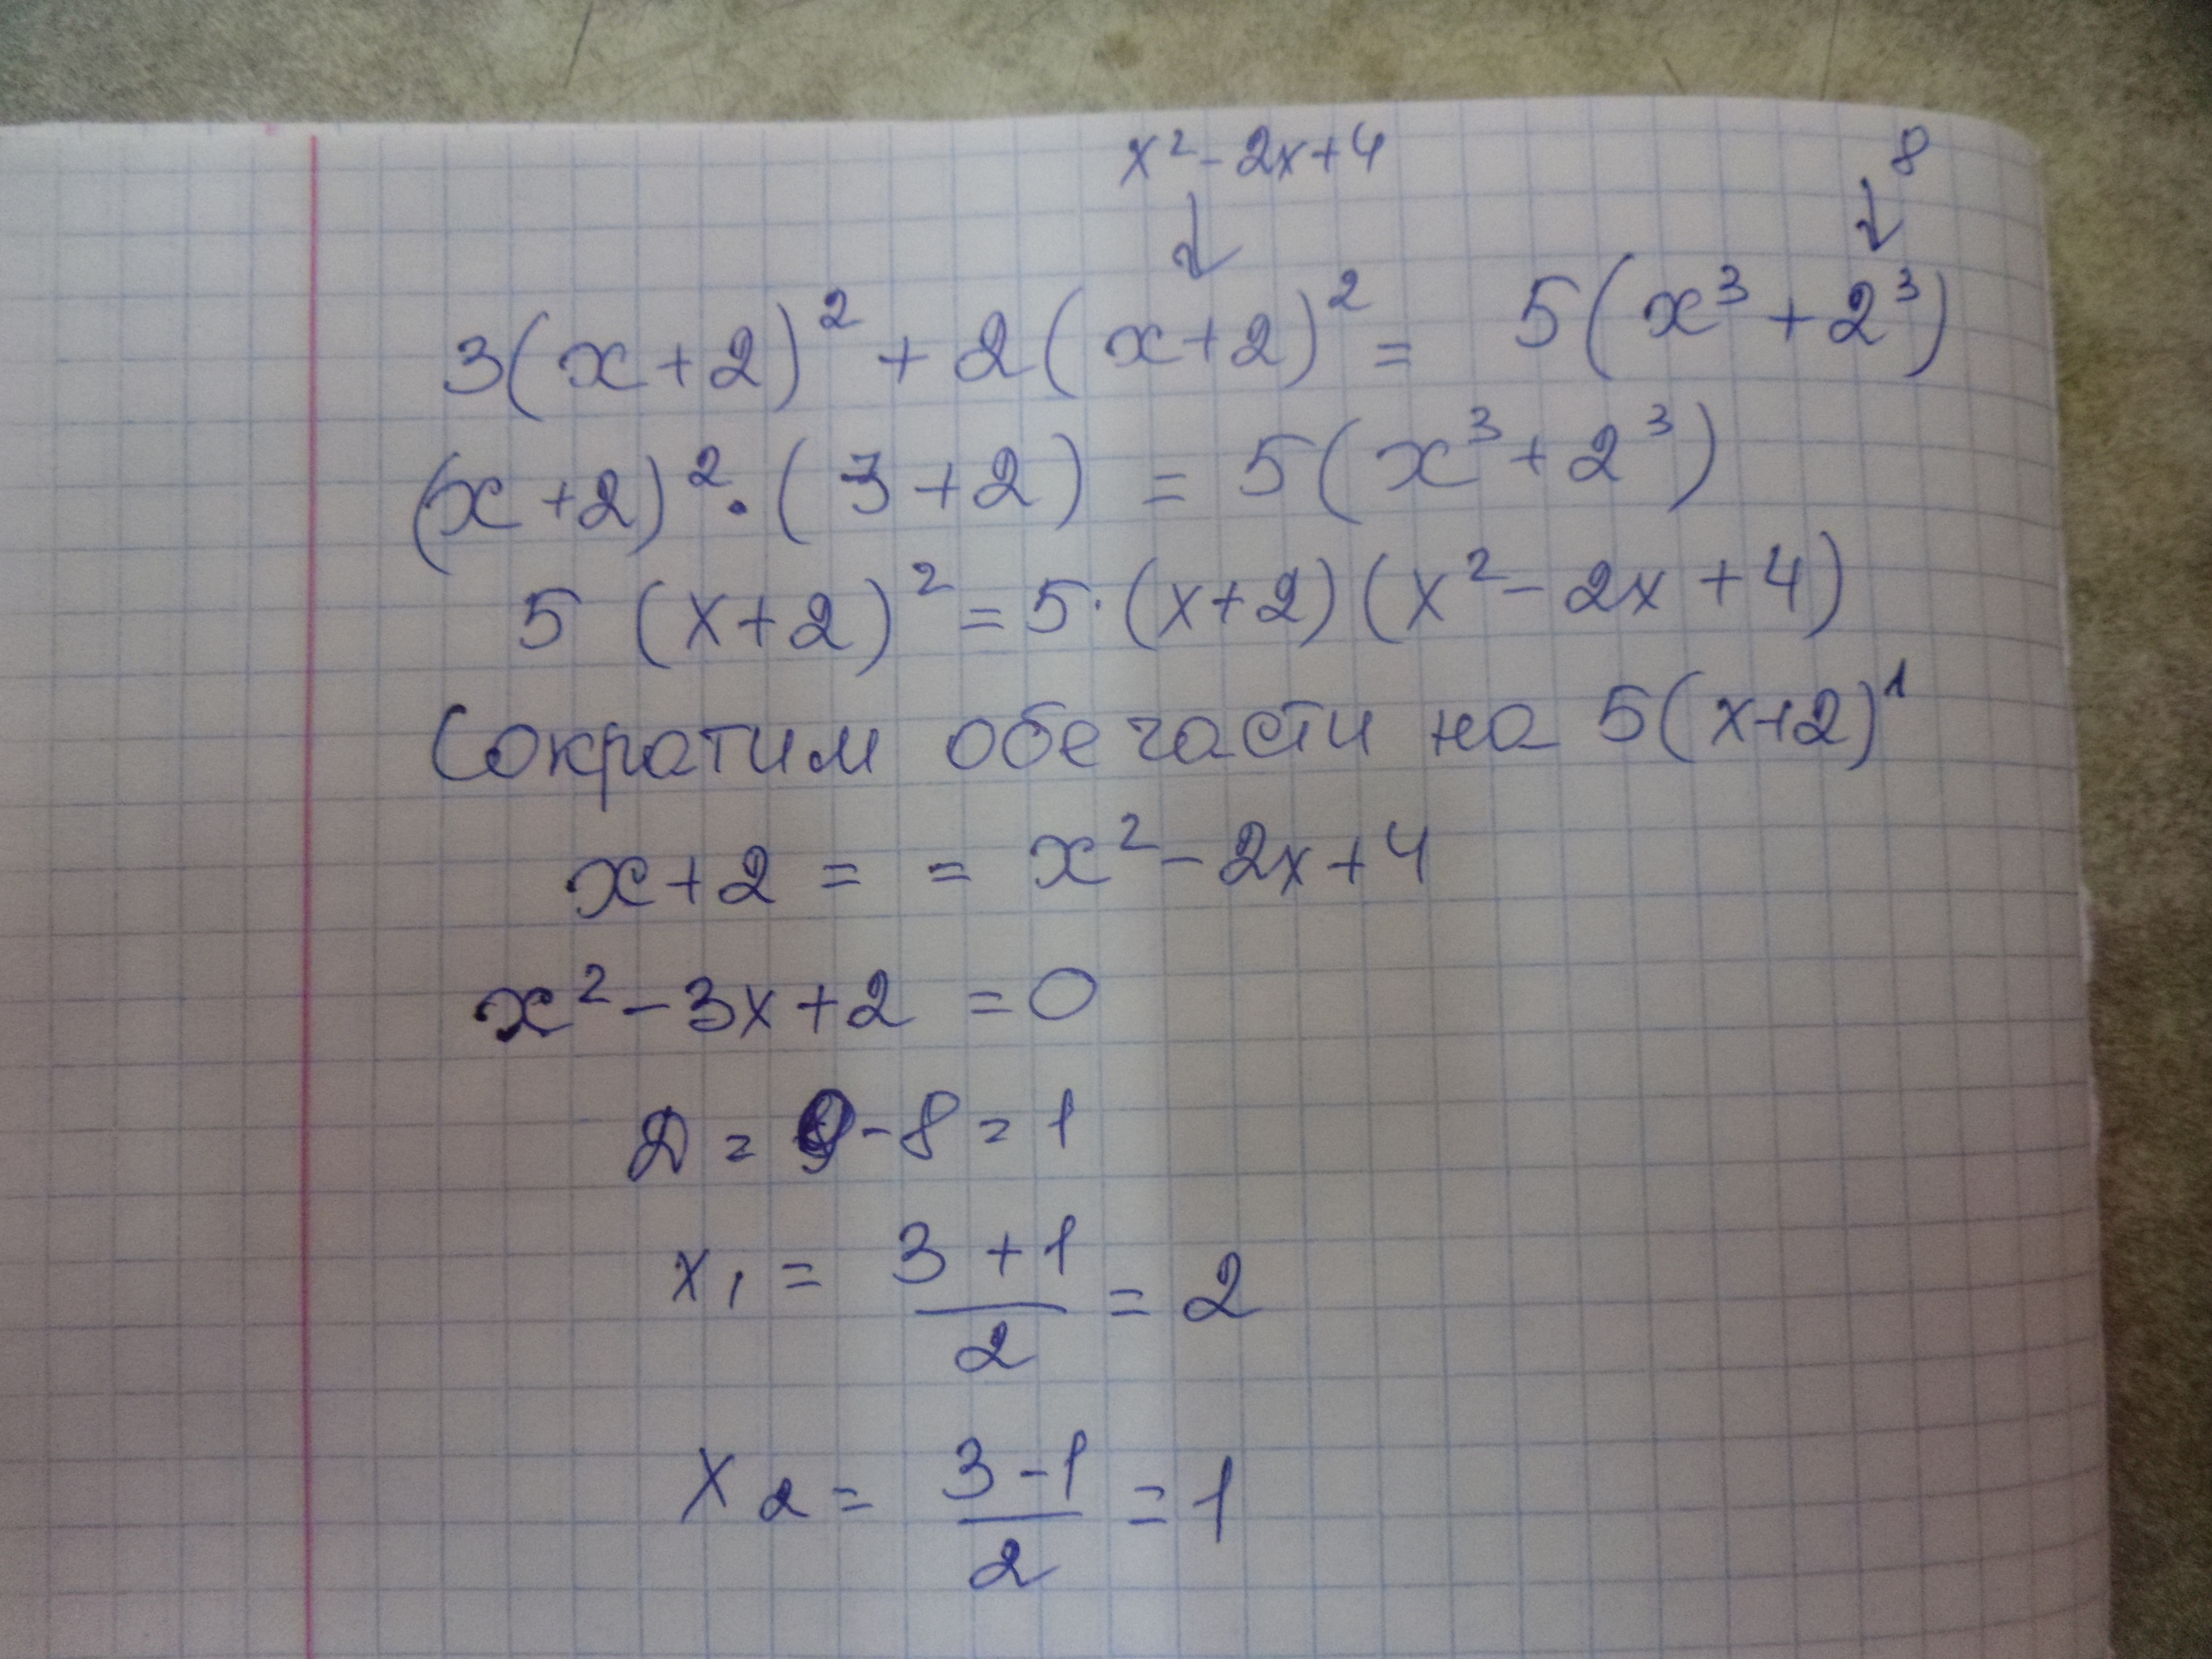 x² - 2x + 4 8
↓ ↓
3(x+2)² + 2(x+2)² = 5(x³ + 2³)
(x+2)² · (3+2) = 5(x³ + 2³)
5 (x+2)² = 5 · (x+2)(x² - 2x + 4)
Сократим обе части на 5(x+2)¹
x+2 = = x² - 2x + 4
x² - 3x + 2 = 0
D = 9 - 8 = 1
x₁ = (3 + 1)/2 = 2
x₂ = (3 - 1)/2 = 1